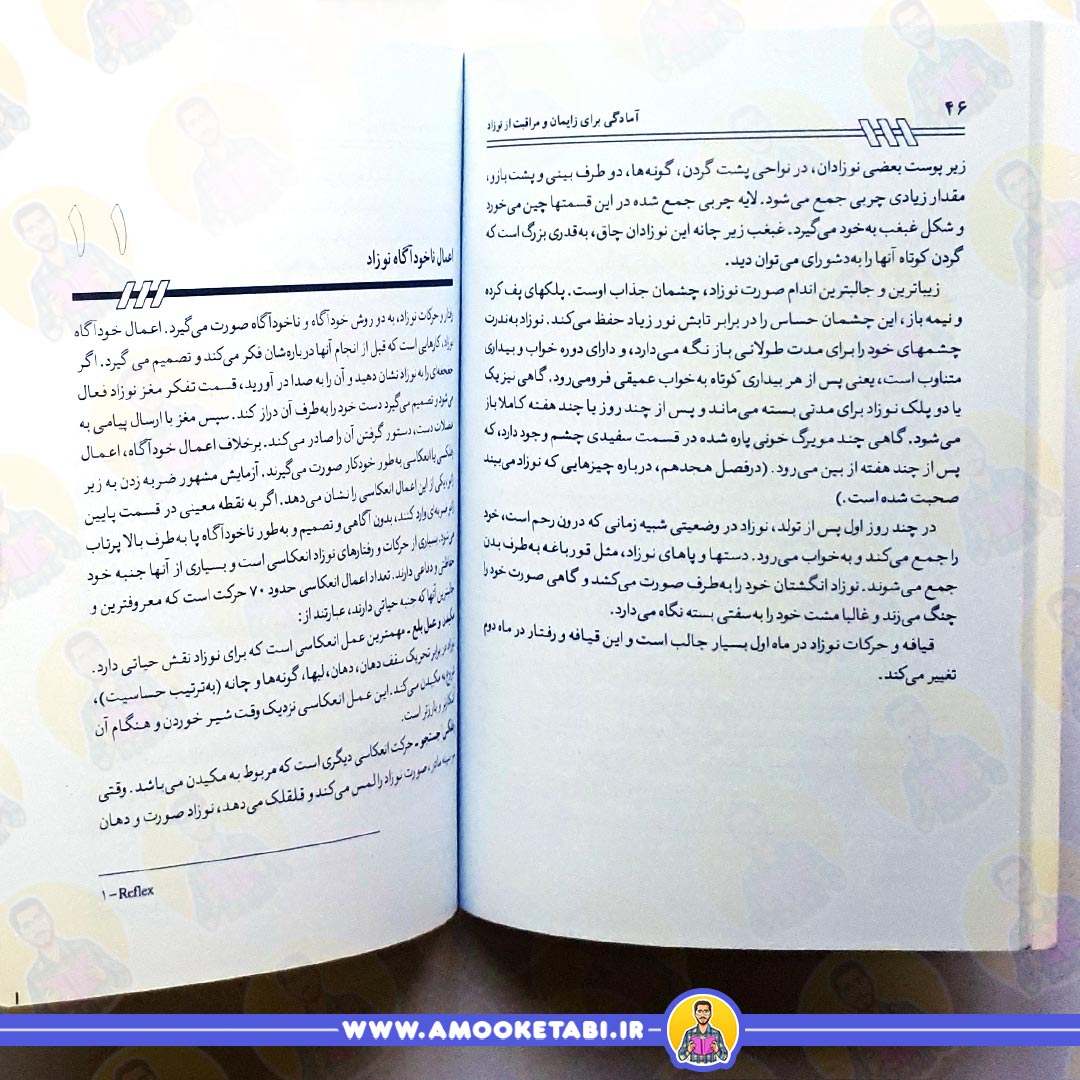 ۴۶
آمادگی برای زایمان و مراقبت از نوزاد
زیر پوست بعضی نوزادان، در نواحی پشت گردن، گونه‌ها، دو طرف بینی و پشت بازو،
مقدار زیادی چربی جمع می‌شود. لایه چربی جمع شده در این قسمتها چین می‌خورد
و شکل غبغب به‌خود می‌گیرد. غبغب زیر چانه این نوزادان چاق، به‌قدری بزرگ است که
گردن کوتاه آنها را به‌دشورای می‌توان دید.
زیباترین و جالبترین اندام صورت نوزاد، چشمان جذاب اوست. پلکهای پف کرده
و نیمه باز، این چشمان حساس را در برابر تابش نور زیاد حفظ می‌کند. نوزاد به‌ندرت
چشمهای خود را برای مدت طولانی باز نگه می‌دارد، و دارای دوره خواب و بیداری
متناوب است، یعنی پس از هر بیداری کوتاه به‌خواب عمیقی فرومی‌رود. گاهی نیز یک
یا دو پلک نوزاد برای مدتی بسته می‌ماند و پس از چند روز یا چند هفته کاملا باز
می‌شود. گاهی چند مویرگ خونی پاره شده در قسمت سفیدی چشم وجود دارد، که
پس از چند هفته از بین می‌رود. (درفصل هجدهم، درباره چیزهایی که نوزاد می‌بیند
صحبت شده است.)
در چند روز اول پس از تولد، نوزاد در وضعیتی شبیه زمانی که درون رحم است، خود
را جمع می‌کند و به‌خواب می‌رود. دستها و پاهای نوزاد، مثل قورباغه به‌طرف بدن
جمع می‌شوند. نوزاد انگشتان خود را به‌طرف صورت می‌کشد و گاهی صورت خود را
چنگ می‌زند و غالبا مشت خود را به‌سفتی بسته نگاه می‌دارد.
قیافه و حرکات نوزاد در ماه اول بسیار جالب است و این قیافه و رفتار در ماه دوم
تغییر می‌کند.
۱۱
اعمال ناخودآگاه نوزاد
و حرکات نوزاد، به دو روش خودآگاه و ناخودآگاه صورت می‌گیرد. اعمال خودآگاه
نوزاد، کارهایی است که قبل از انجام آنها درباره‌شان فکر می‌کند و تصمیم می گیرد. اگر
جغجغه‌ای را به نوزاد نشان دهید و آن را به صدا در آورید، قسمت تفکر مغز نوزاد فعال
می‌شود و تصمیم می‌گیرد دست خود را به‌طرف آن دراز کند. سپس مغز با ارسال پیامی به
عضلات دست، دستور گرفتن آن را صادر می‌کند. برخلاف اعمال خودآگاه، اعمال
یا انعکاسی به‌طور خودکار صورت می‌گیرند. آزمایش مشهور ضربه زدن به زیر
یکی از این اعمال انعکاسی را نشان می‌دهد. اگر به نقطه معینی در قسمت پایین
ضربه‌ای وارد کنند، بدون آگاهی و تصمیم و به‌طور ناخودآگاه پا به‌طرف بالا پرتاب
می‌شود. بسیاری از حرکات و رفتارهای نوزاد انعکاسی است و بسیاری از آنها جنبه خود
حفاظتی و دفاعی دارند. تعداد اعمال انعکاسی حدود ۷۰ حرکت است که معروفترین و
آنها که جنبه حیاتی دارند، عبارتند از:
مکیدن و عمل بلع ـ مهمترین عمل انعکاسی است که برای نوزاد نقش حیاتی دارد.
نوزاد در برابر تحریک سقف دهان، دهان، لبها، گونه‌ها و چانه (به‌ترتیب حساسیت)،
شروع به مکیدن می‌کند. این عمل انعکاسی نزدیک وقت شیر خوردن و هنگام آن
و بارزتر است.
جستجو ـ حرکت انعکاسی دیگری است که مربوط به مکیدن می‌باشد. وقتی
سینه مادر، صورت نوزاد را لمس می‌کند و قلقلک می‌دهد، نوزاد صورت و دهان
۱ – Reflex
WWW.AMOOKETABI.IR